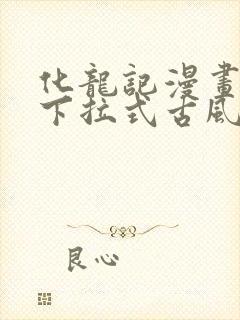 化龍記漫畫
下拉式古風
良心